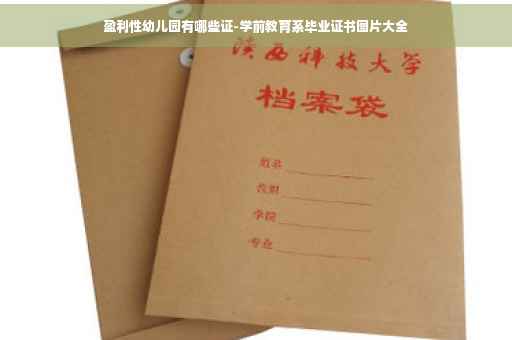 盈利性幼儿园有哪些证-学前教育系毕业证书图片大全
陕西科技大学
档案袋
学院
专业